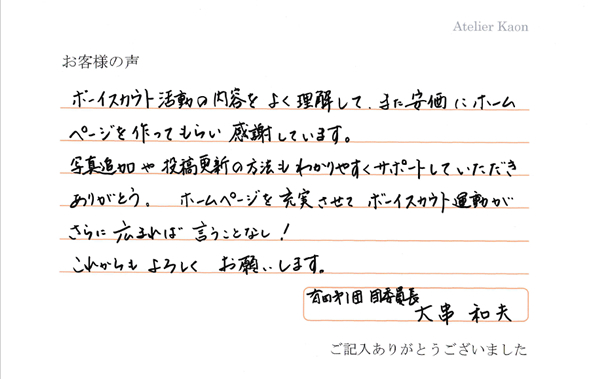 Atelier Kaon
お客様の声
ボーイスカウト活動の内容をよく理解して、また安価にホーム
ページを作ってもらい感謝しています。
写真追加や投稿更新の方法もわかりやすくサポートしていただき
ありがとう。 ホームページを充実させてボーイスカウト運動が
さらに広まれば言うことなし!
これからもよろしくお願いします。
有田第1団 団委員長
大串 和夫
ご記入ありがとうございました